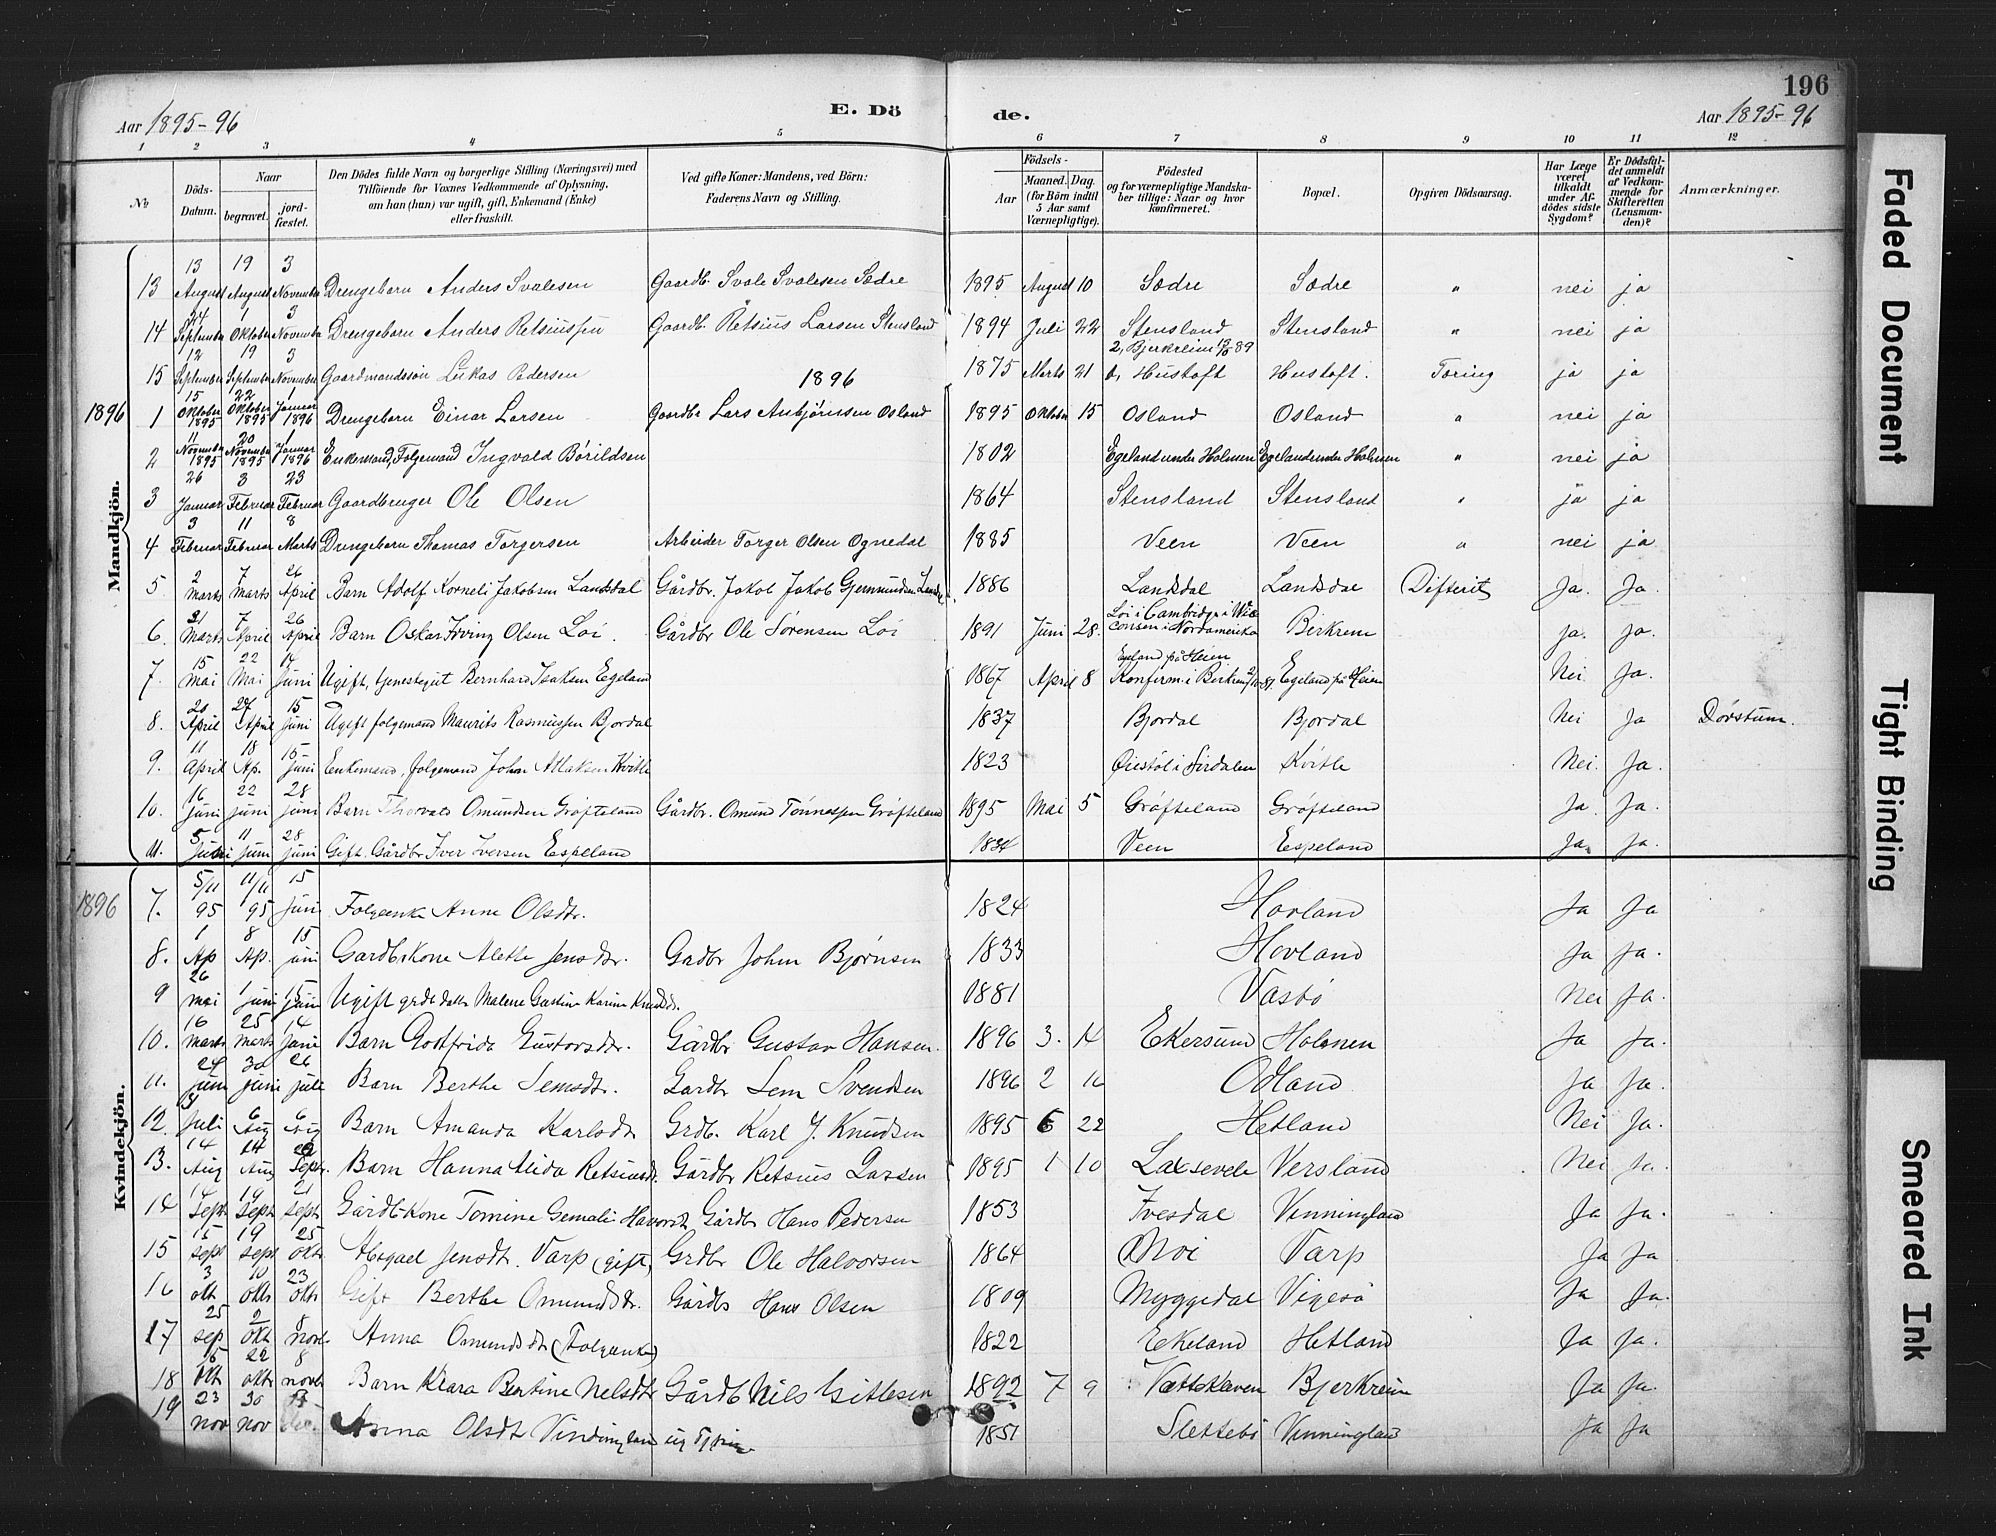 196
Aar 1895-96
E. Dö
de.
Aar 1895-96
1 2 3 4 5 6 7 8 9 10 11 12
No
Döds-Datum.
Naar begravet. jordfæstet.
Den Dödes fulde Navn og borgerlige Stilling (Næringsvei) med Tilföiende for Voxnes Vedkommende af Oplysning, om han (hun) var ugift, gift, Enkemand (Enke) eller fraskilt.
Ved gifte Koner: Mandens, ved Börn: Faderens Navn og Stilling.
Födsels-
Aar Maaned. Dag. (for Börn indtil 5 Aar samt Værnepligtige).
Födested og for værnepligtige Mandskaber tillige: Naar og hvor konfirmeret.
Bopæl.
Opgiven Dödsaarsag.
Har Læge været tilkaldt under Afdödes sidste Sygdom?
Er Dödsfaldet anmeldt af Vedkommende for Skifteretten (Lensmanden)?
Anmærkninger.
Mandkjön.
13 13 August 19 August 3 November Drengebarn Anders Svalesen Gaardb. Svale Svalesen Sædre 1895 August 10 Sædre Sædre " nei ja
14 24 September 1 Oktober 3 November Drengebarn Anders Retsiussen Gaardb. Retsius Larsen Stensland 1894 Juli 22 Stensland Stensland " nei ja
15 12 September 19 September 3 November Gaardmandssön Lukas Pedersen 1875 Marts 21 Hustoft Hustoft. Tæring ja ja
2, Bjerkreim 89
1896
1896 1 15 Oktober 1895 22 Oktober 1895 1 Januar 1896 Drengebarn Einar Larsen Gaardbr Lars Aubjørnssen Osland 1895 Oktober 15 Osland Osland " nei ja
2 11 November 1895 20 November 1895 1 Januar 1896 Enkemand, Folgemand Ingvald Börildsen 1802 Egeland under Holmen Egeland under Holmen " nei ja
3 26 Januar 3 Februar 23 Februar Gaardbruger Ole Olsen 1864 Stensland Stensland " ja ja
4 3 Februar 11 Februar 8 Marts Drengebarn Thomas Torgersen Arbeider Torger Olsen Ognedal 1885 Veen Veen " nei ja
5 2 Marts 7 Marts 26 April Barn Adolf Korneli Jakobsen Landsdal Gårdbr. Jakob Jakob Gjermundsen 1886 Landsdal Landsdal Difterit Ja. Ja.
6. 31 Marts 7 April 26 April Barn Oskar Irving Olsen Loi. Gårdbr Ole Sörensen Loi 1891 Juni 28. Loi i Cambridge i Wisconsin i Nordamerika Birkrem ja. Ja.
7. 15 Mai 22 Mai 14 Juni Ugift, tjenestegut Bernhard Isaksen Egeland 1867 April 8 Egeland på Heien Konfirm. i Birkrem Egeland på Heien Nei Ja.
8. 20 April 27 April 15 Juni Ugift folgemand Maurits Rasmussen Bjordal 1837 Bjordal Bjordal Nei Ja Dövstum.
9. 11 April 18 Ap. 15 Juni Enkemand, folgemand John Allaksen Kvitle 1823 Öiestöl i Sirdalen Kvitle Nei. Ja.
10. 16 Juni 22 juni 28 juni Barn Thorvald Omundsen Gröfteland Gårdbr. Omund Tönnessen Gröfteland 1895 Mai 5 Gröfteland Gröfteland Ja. Ja.
11. 5 Juni 11 Juni 28 juni Gift. Gårdbr Iver Iversen Espeland 1834 Veen Espeland Ja. Ja.
Kvindekjön.
1896 7. 5/11 95 11/11 95 15 Juni Folgeenke Anne Olsdtr. 1824 Hovland Ja Ja
8. 1 Ap 8 Ap. 15 juni Gardbrkone Alette Jensdtr. Gadbr John Bjørnsen 1833 Hovland Ja Ja.
9 26 mai 1 juni 15 juni Ugift 1881 Vasbö Nei Ja.
10. 16 Marts 25 Marts 14 Juni Barn Gotfrida Gustavsdtr. Gårdbr Gustav Hansen. 1896 3. 14 Ekersund Holmen Ja Ja.
11. 24 juni 30 juni 26 juli Barn Berthe Semsdtr. Gardbr Sem Svendsen 1896 2 16 Odland Ja Ja.
12. Juli 6 Aug 6 Aug Barn Amanda Karlsdtr Grdbr. Karl J. Knudsen 1895 6 22 Hetland Nei Ja.
13. 14 Aug 14 Aug Sept. Barn Hanna Alida Retsiusdtr. Gårdbr Retsius Larsen 1895 1 10 Laksevele Versland Nei Ja.
14 14 Sept 19 Sept 21 sept Gårdbkone Tomine Gårdbr Hans Pedersen 1853 Ivesdal Vinningland Ja Ja.
15 15 sept 19 sept 25 okt Abigael Jensdtr. Varp (gift) Grdbr Ole Halvorsen 1864 Moi Varp Ja Ja
16 3 okt 10 oktr 23 oktr Gift Berthe Omundsdtr. Gårdbr Hans Olsen 1809 Myggedal Vigesö Ja Ja.
17 25 sep 2 okt 8 novbr Anna Omundsdtr (Folgeenke) 1822 Eikeland Hetland Ja Ja.
18 15 okt 22 oktr 8 novbr Barn Klara Bertine Nelsdtr Gårdb Nils Gitlesen 1892 7 9 Bjerkreim Ja Ja.
19 23 nov 30 nov Anna Olsdtr 1851 Slettebö Vinningland Ja Ja
Faded Document
Tight Binding
Smeared Ink